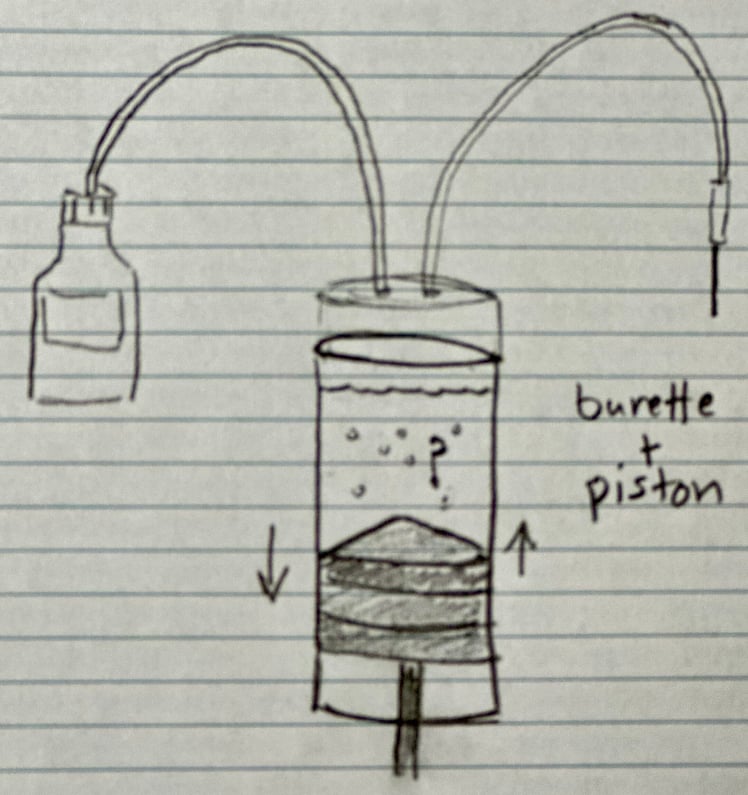 ?
burette
+
piston